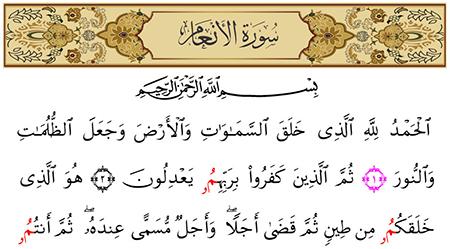 سُورَةُ الأَنْعَامِ
بِسْمِ ٱللَّهِ ٱلرَّحْمَٰنِ ٱلرَّحِيمِ
ٱلْحَمْدُ لِلَّهِ ٱلَّذِى خَلَقَ ٱلسَّمَٰوَاتِ وَٱلْأَرْضَ وَجَعَلَ ٱلظُّلُمَاتِ
وَٱلنُّورَ ﴿١﴾ ثُمَّ ٱلَّذِينَ كَفَرُوا۟ بِرَبِّهِمُۥ يَعْدِلُونَ ﴿٢﴾ هُوَ ٱلَّذِى
خَلَقَكُمُۥ مِن طِينٍ ثُمَّ قَضَىٰٓ أَجَلًا ۖ وَأَجَلٌ مُّسَمًّى عِندَهُۥ ۖ ثُمَّ أَنتُمُۥ